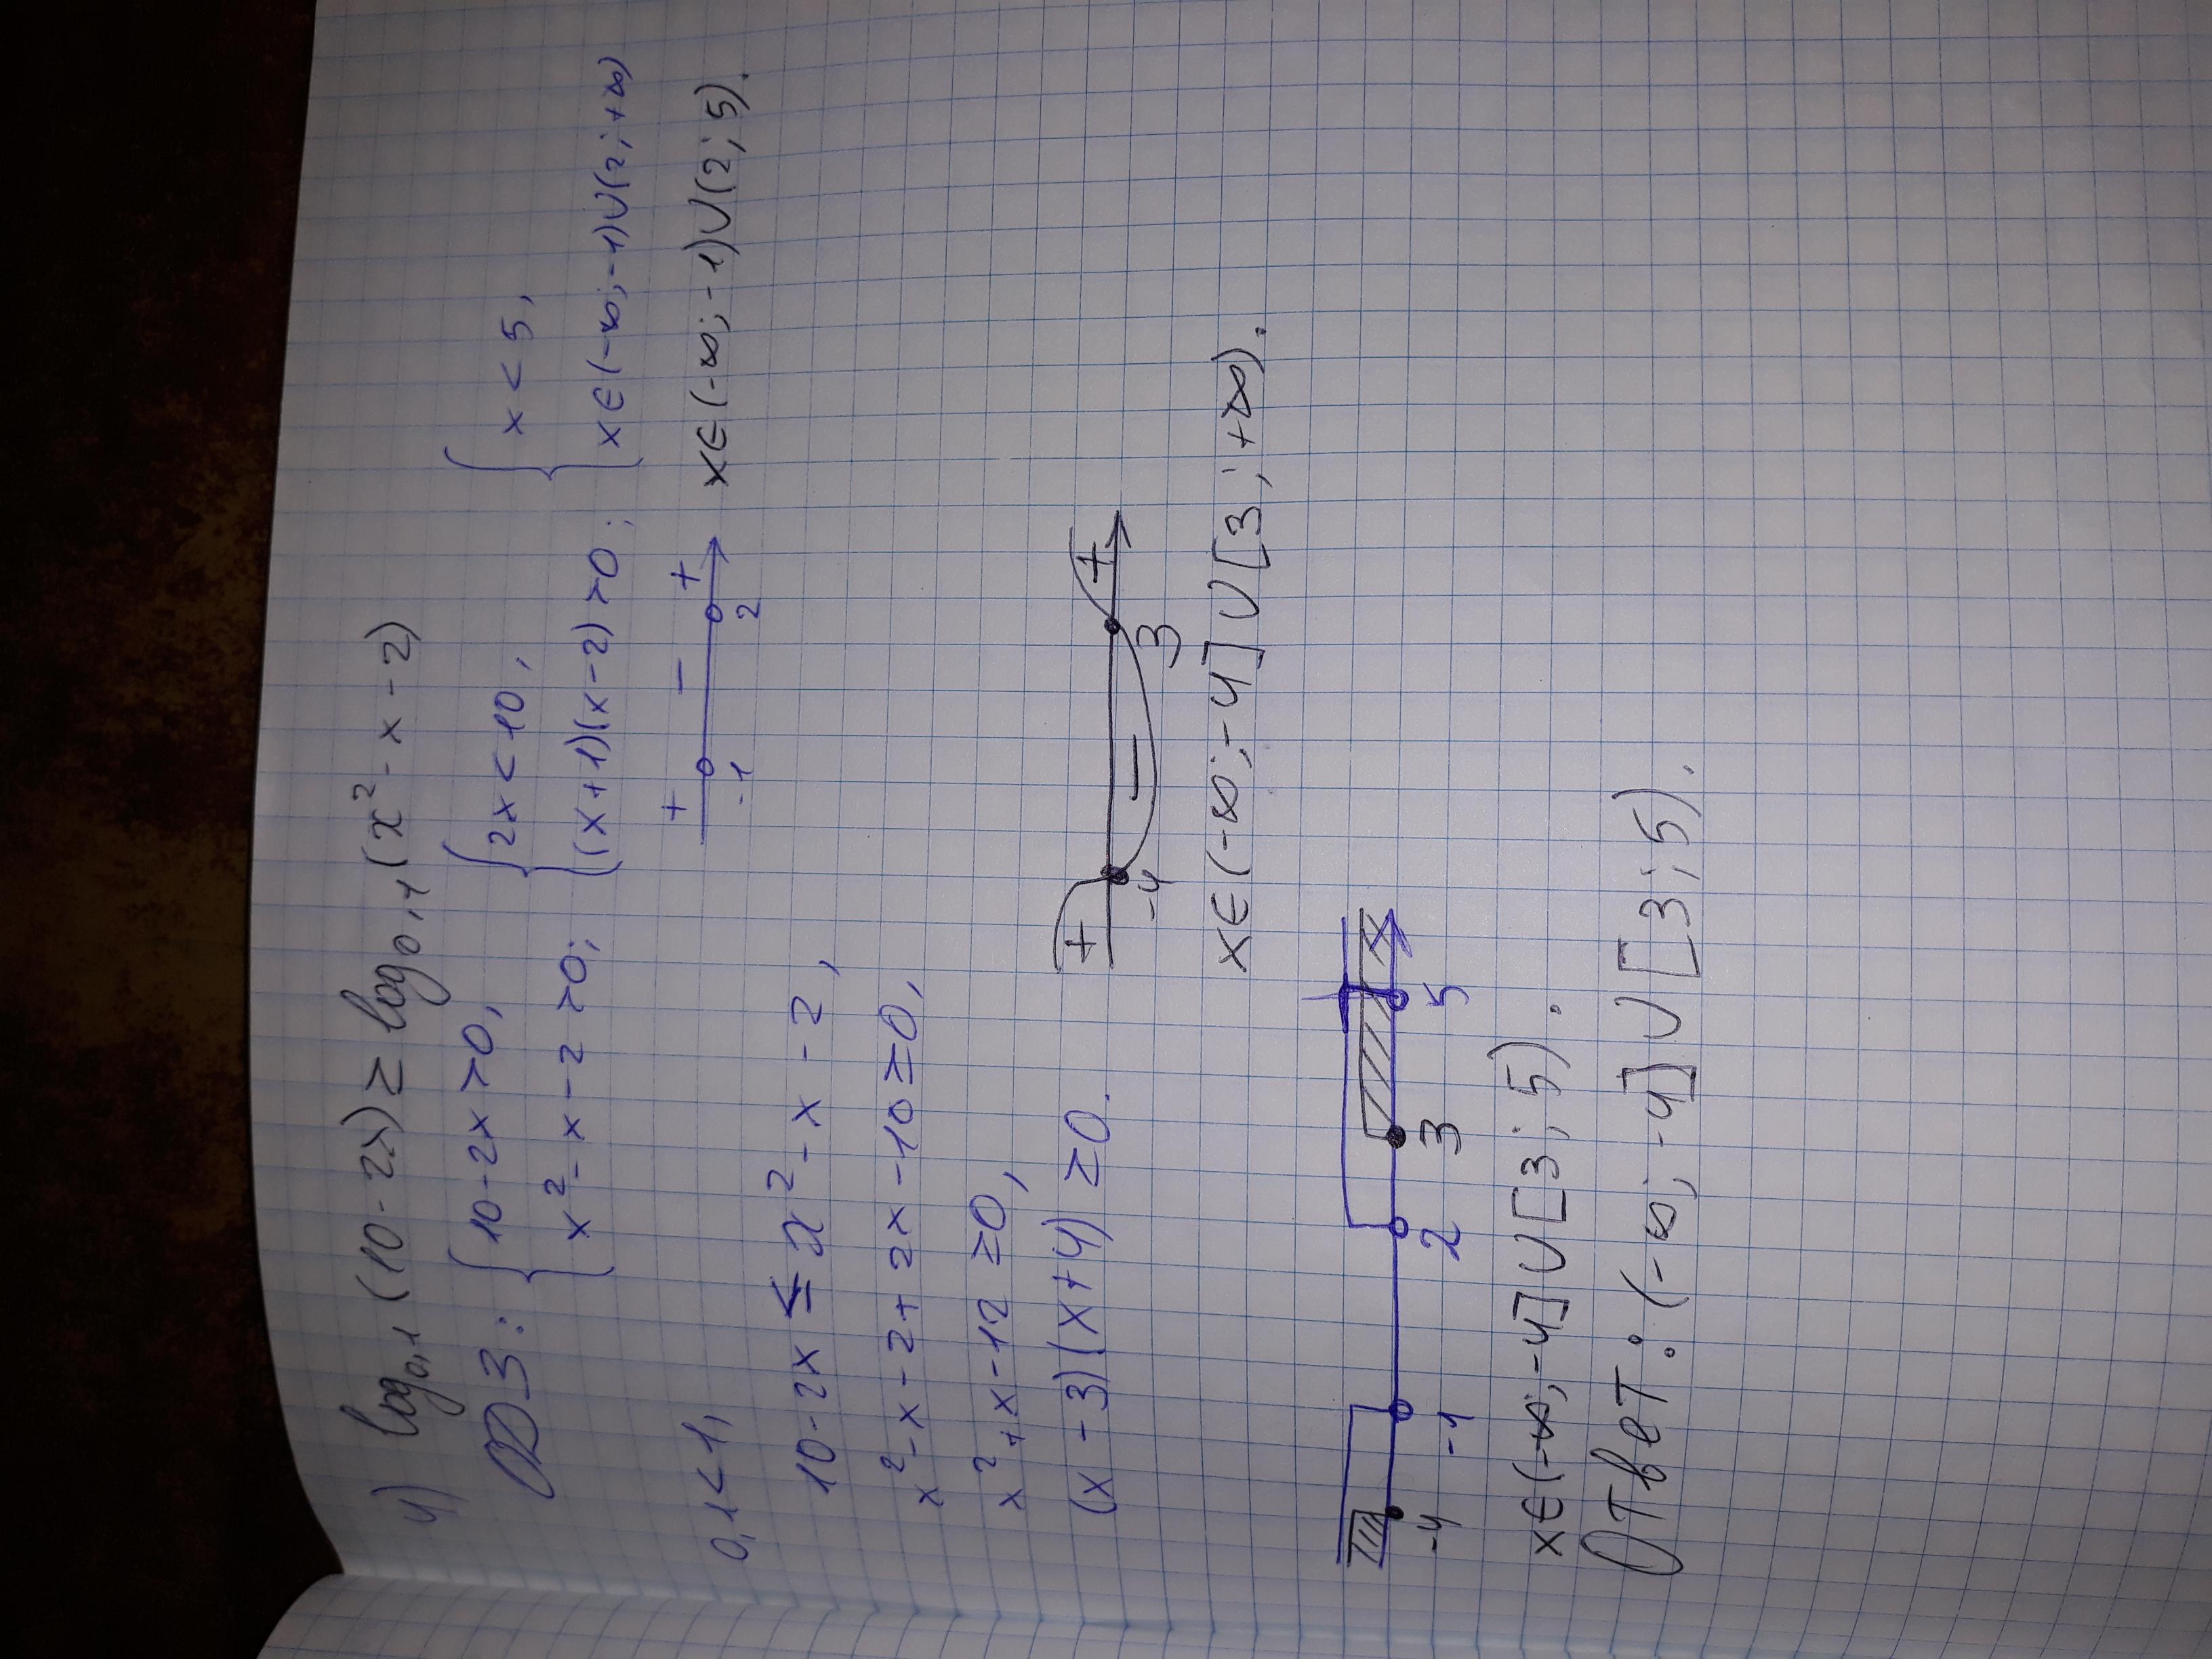 4) log₀,₁ (10-2x) ≥ log₀,₁ (x²-x-2)
ОДЗ: { 10-2x>0, { 2x<10, { x<5,
x²-x-2>0; (x+1)(x-2)>0; x∈(-∞;-1)∪(2;+∞)
+ - +
-1 2
x∈(-∞;-1)∪(2;5).
0,1<1,
10-2x ≤ x²-x-2,
x²-x-2+2x-10≥0,
x²+x-12≥0,
(x-3)(x+4)≥0.
+ - +
-4 3
x∈(-∞;-4]∪[3;+∞).
-4 -1 2 3 5
x∈(-∞;-4]∪[3;5).
Ответ: (-∞;-4]∪[3;5).